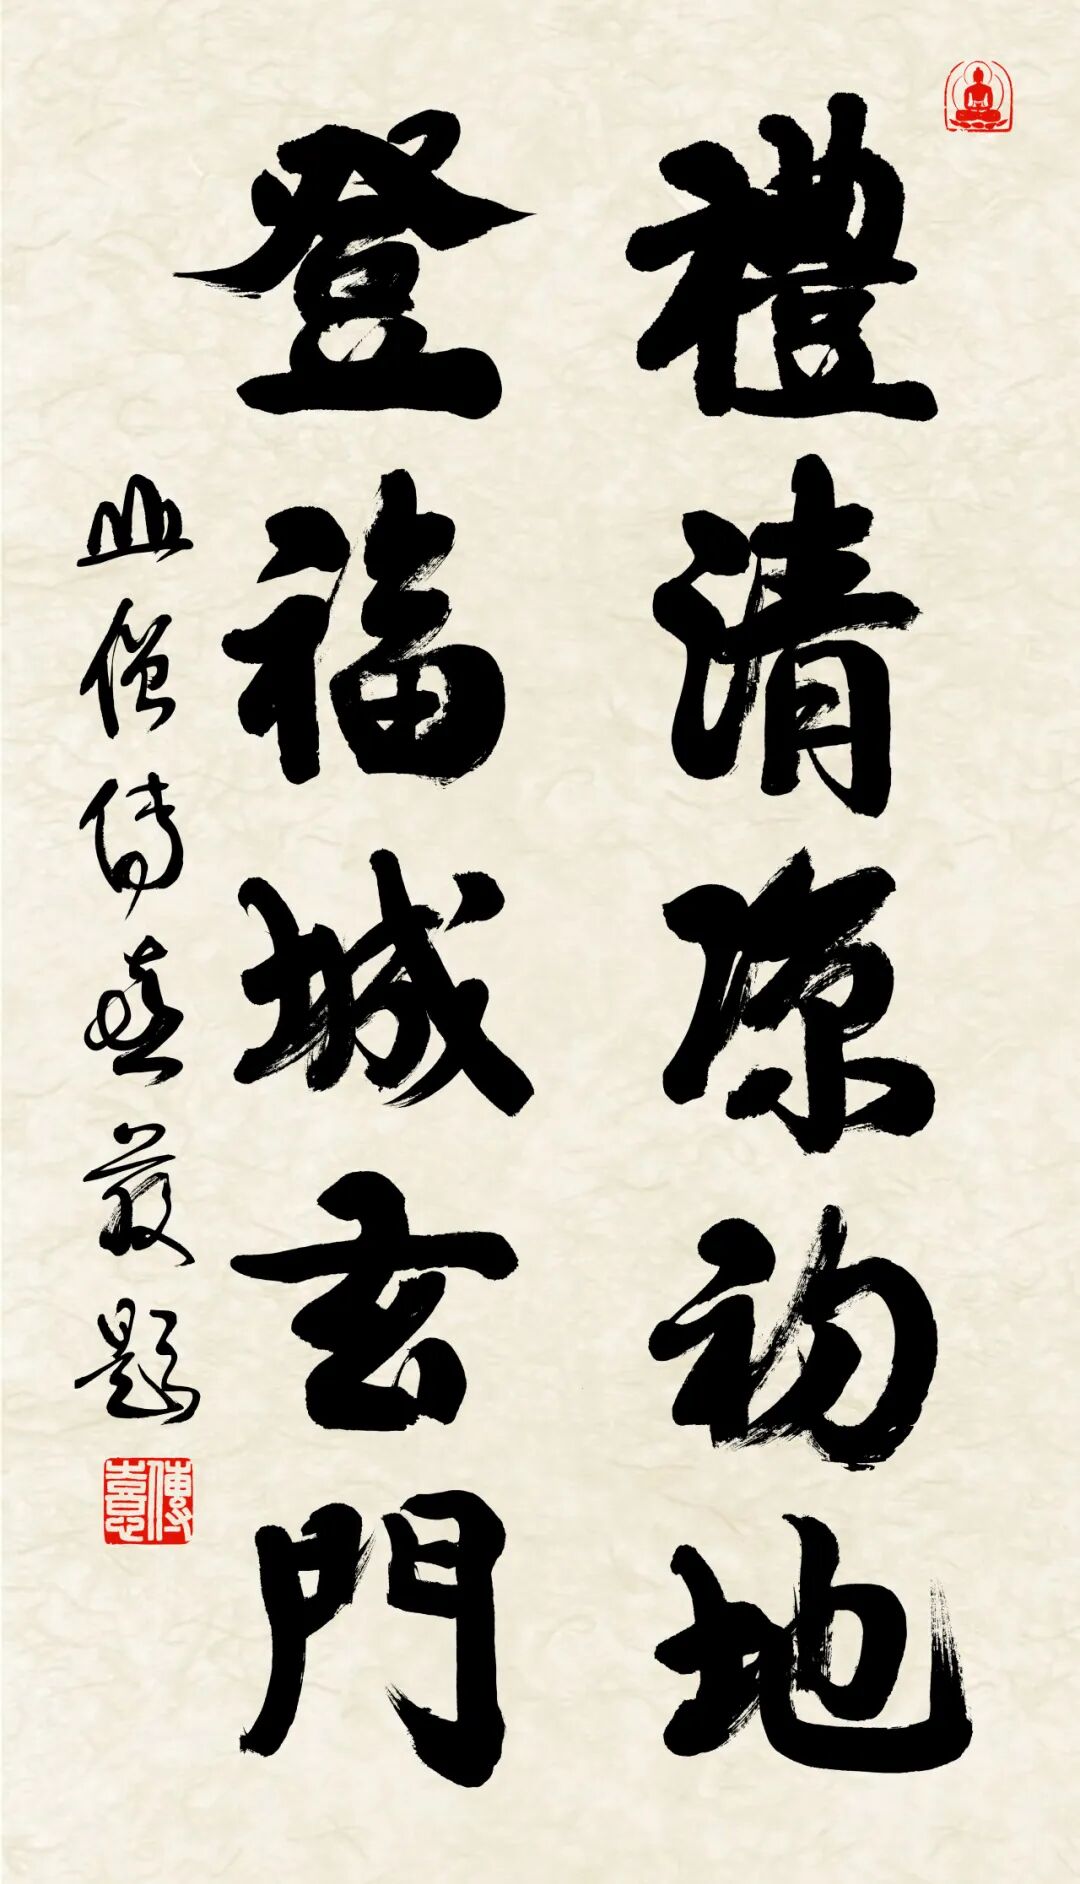 禮清凉初地
登福城玄門
山僧傳喜敬題
傳喜